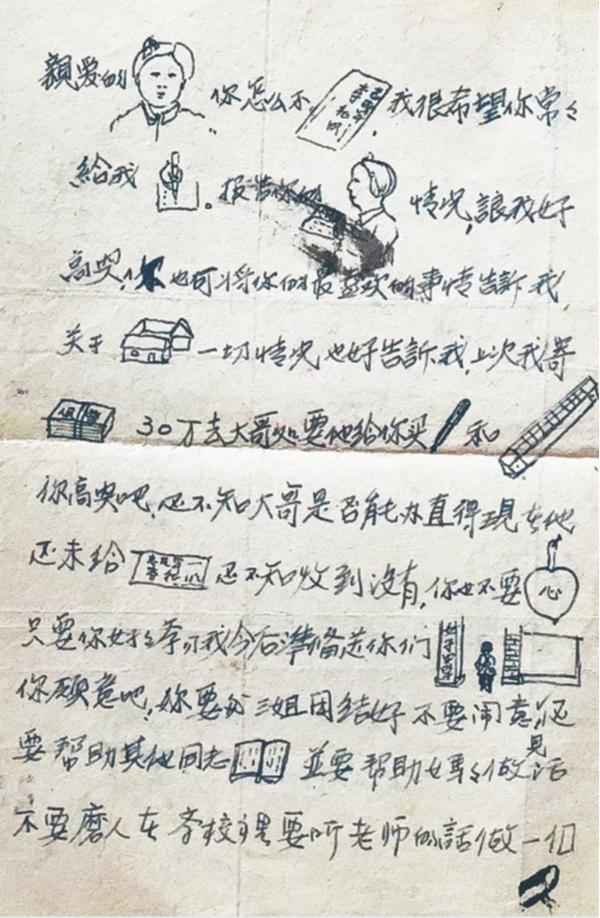 親爱的 你怎么不 我很希望你常々
給我 。报告你的 情况,讓我好
高兴,你也可将你们最喜欢的事情告訴我,
关于 一切情况也好告訴我,上次我寄
30万去大哥处要他给你买 和
你高兴吧,还不知大哥是否能办直得現在他
还未给 还不知收到没有,你也不要 心
只要你好好学习我今后準备送你们
你願意吧,你要分三姐团结好不要闹意见还
要帮助其他同志 並要帮助女好々做活
不要磨人在学校里要听老师的話做一个